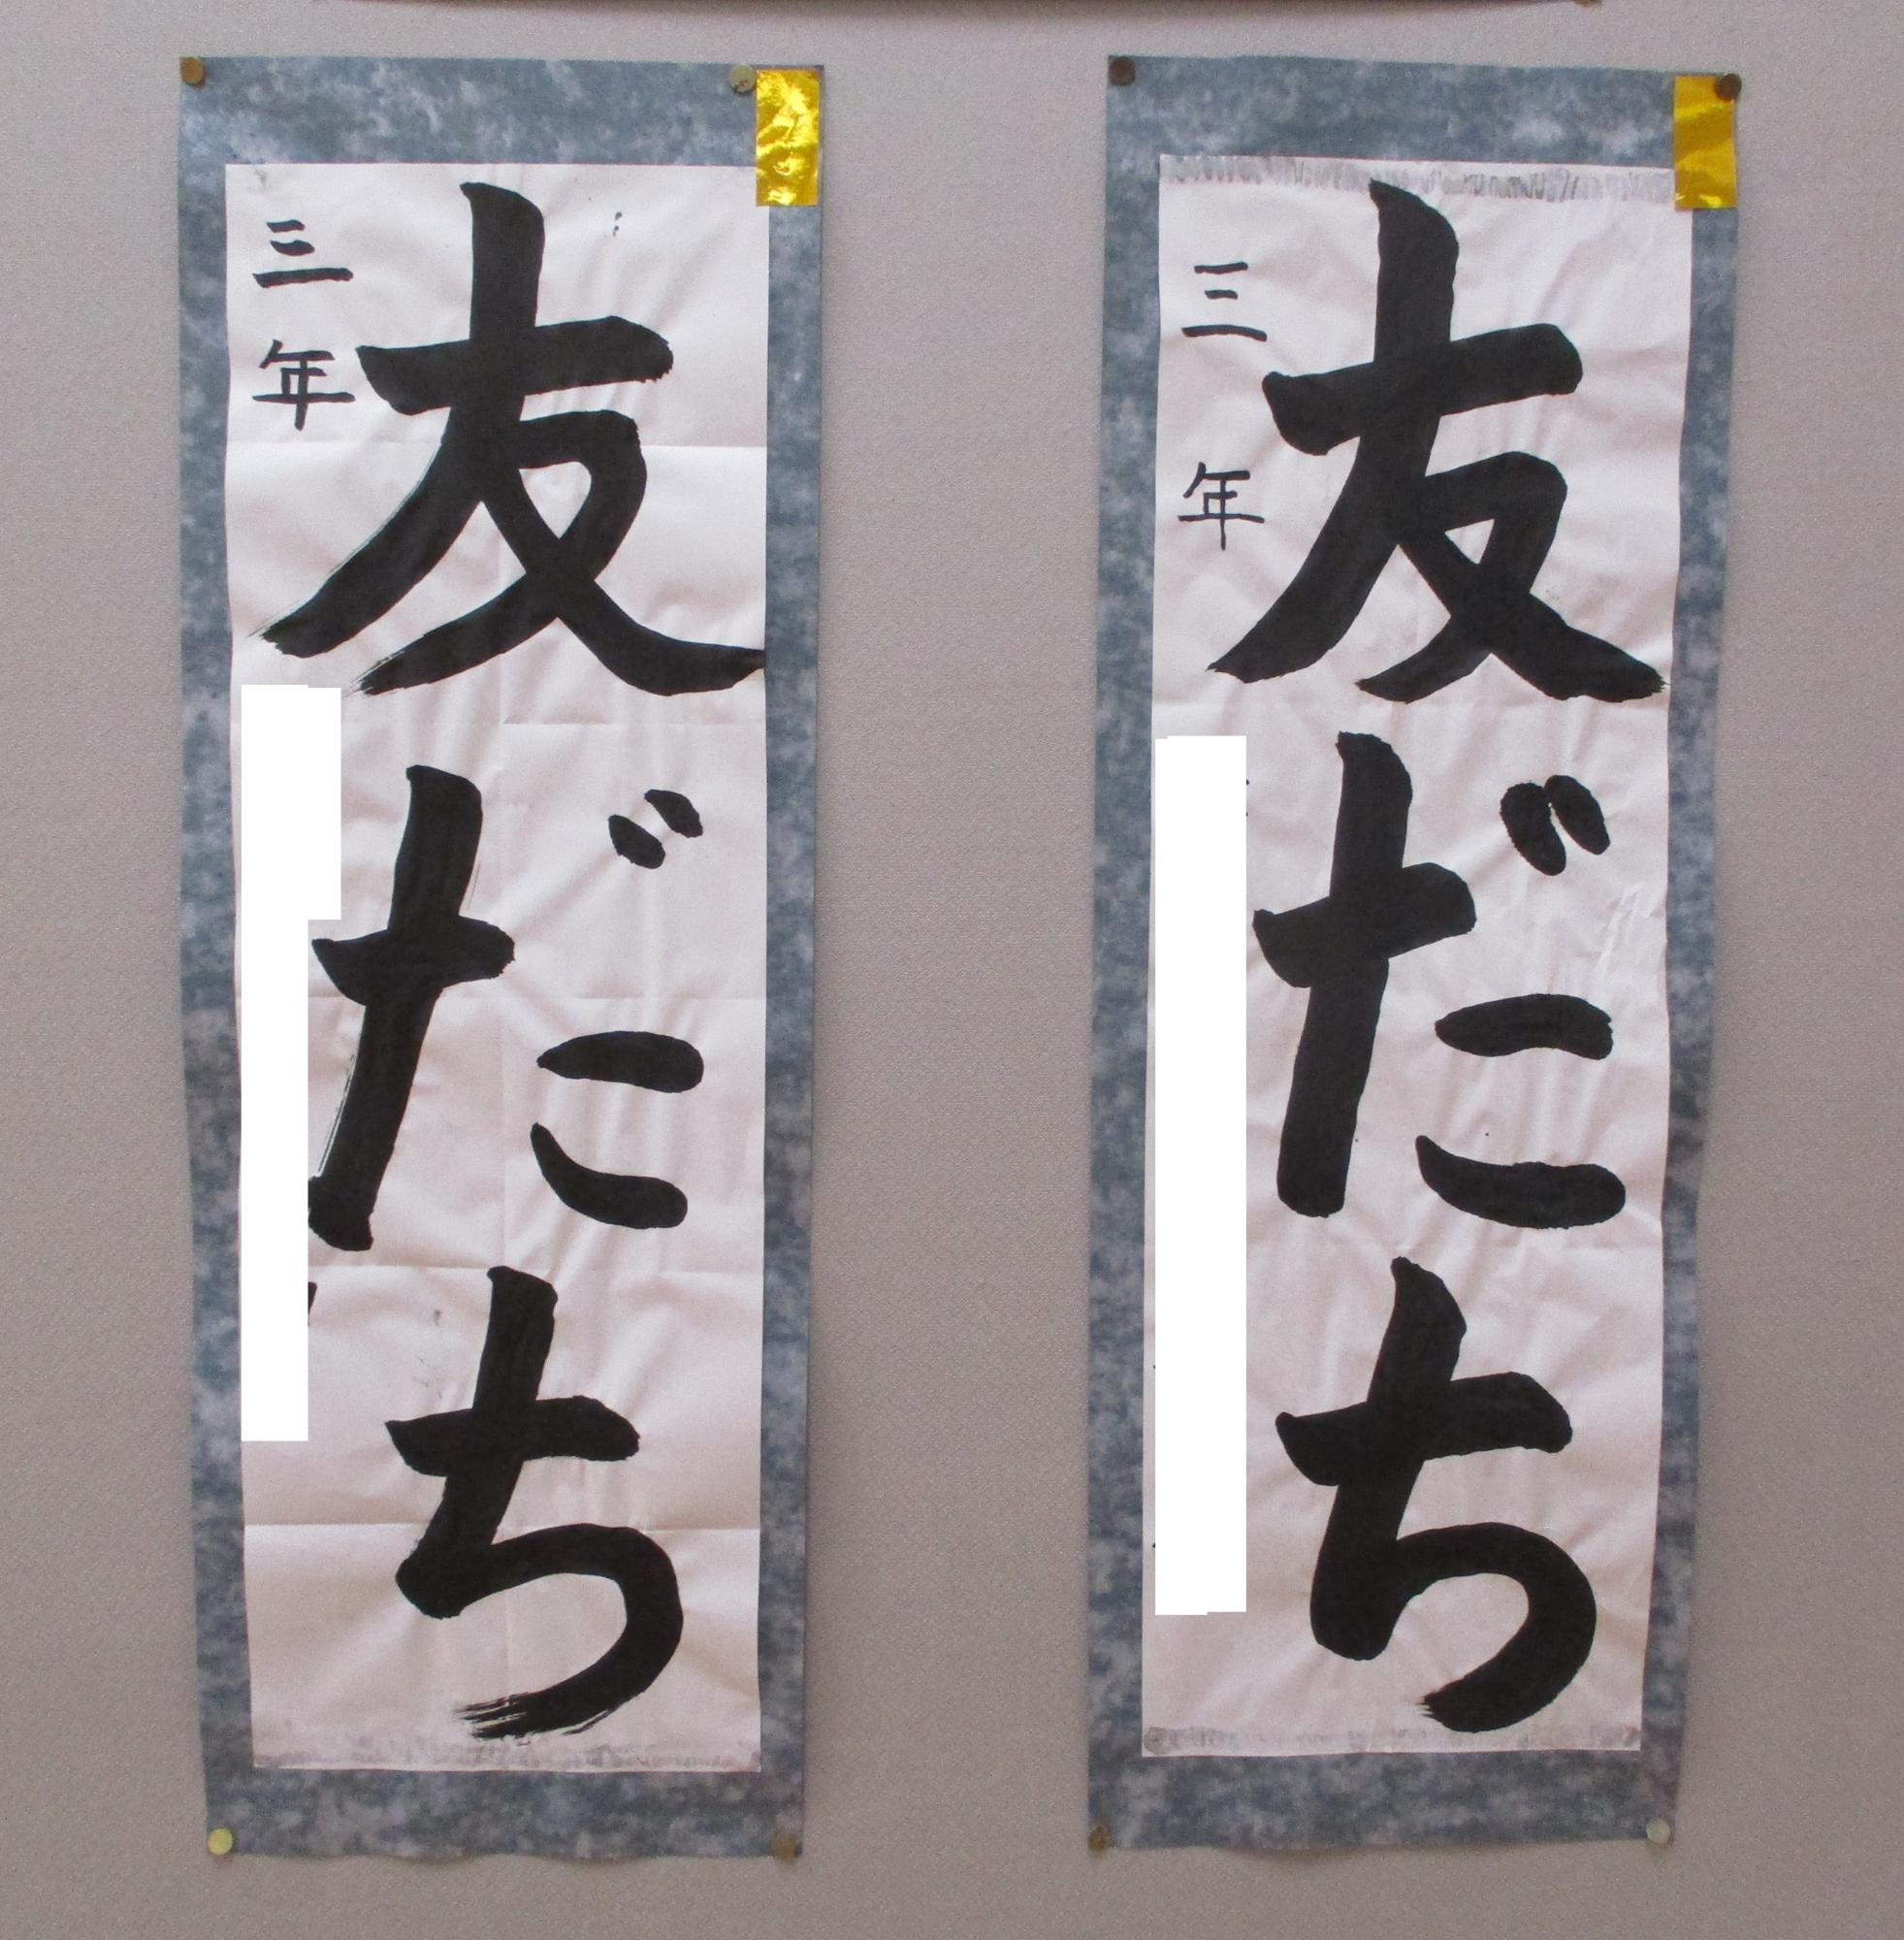 友だち
三年
友だち
三年